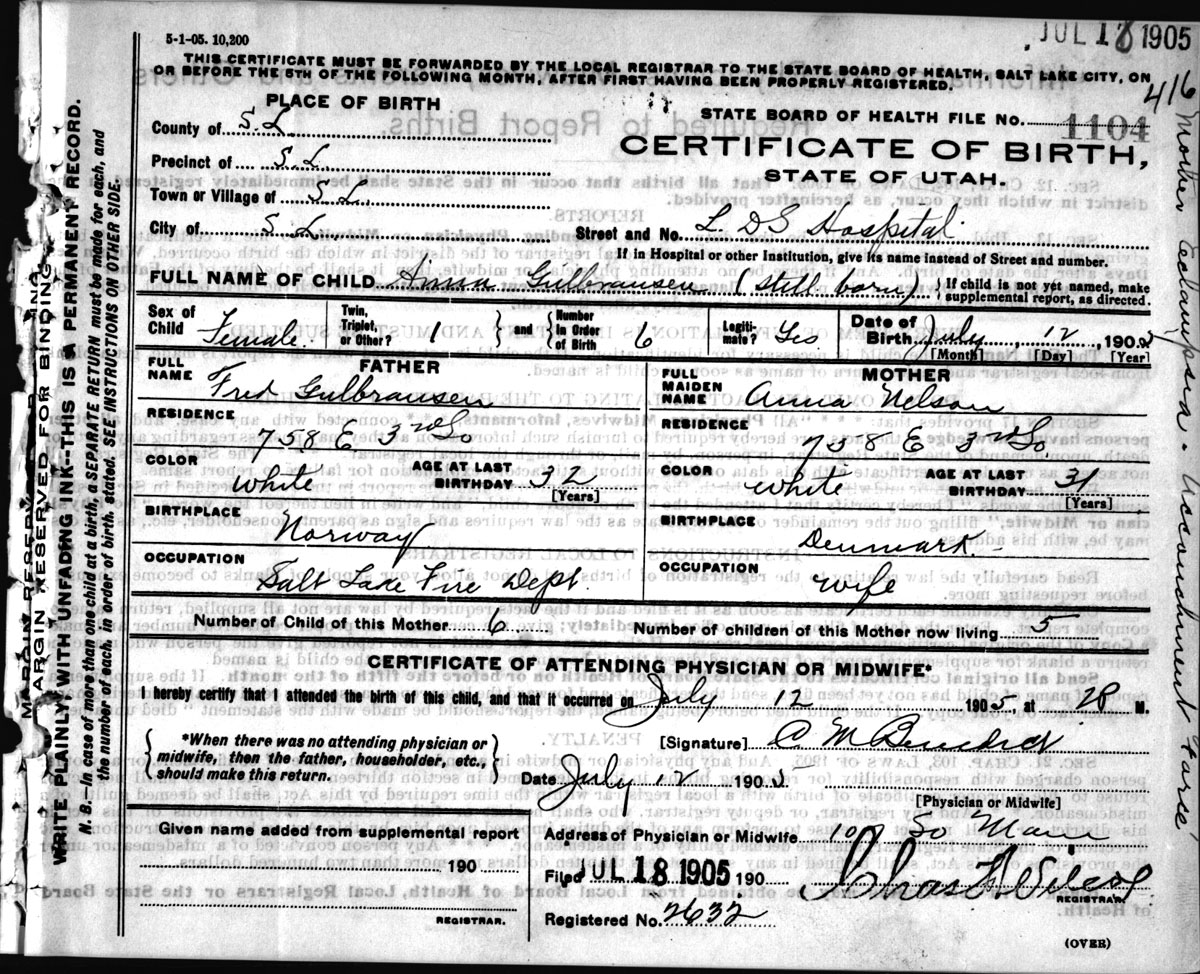 5-1-05. 10,200
JUL 18 1905
THIS CERTIFICATE MUST BE FORWARDED BY THE LOCAL REGISTRAR TO THE STATE BOARD OF HEALTH, SALT LAKE CITY, ON
OR BEFORE THE 5TH OF THE FOLLOWING MONTH, AFTER FIRST HAVING BEEN PROPERLY REGISTERED.
416
PLACE OF BIRTH
STATE BOARD OF HEALTH FILE NO. 1104
County of S. L
CERTIFICATE OF BIRTH,
Precinct of S. L.
STATE OF UTAH.
Town or Village of S L.
City of S. L.
Street and No. L. D S Hospital
If in Hospital or other Institution, give its name instead of Street and number.
FULL NAME OF CHILD Anna Gulbransen (still born)
If child is not yet named, make
supplemental report, as directed.
Sex of Child Female
Twin, Triplet, or Other? 1
and
Number in Order of Birth 6
Legitimate? Yes
Date of Birth July 12, 190
[Month] [Day] [Year]
FATHER
FULL NAME Fred Gulbransen
MOTHER
FULL MAIDEN NAME Anna Nelson
RESIDENCE
758 E 3rd So
RESIDENCE
738 E 3rd So.
COLOR White
AGE AT LAST BIRTHDAY 32
[Years]
COLOR White
AGE AT LAST BIRTHDAY 31
[Years]
BIRTHPLACE
Norway
BIRTHPLACE
Denmark.
OCCUPATION
Salt Lake Fire Dept.
OCCUPATION
Wife
Number of Child of this Mother 6
Number of children of this Mother now living 5
CERTIFICATE OF ATTENDING PHYSICIAN OR MIDWIFE*
I hereby certify that I attended the birth of this child, and that it occurred on July 12 1905, at M.
*When there was no attending physician or
midwife, then the father, householder, etc.,
should make this return.
[Signature] C M Benedict
Date July 12 1905
[Physician or Midwife]
Given name added from supplemental report
190
REGISTRAR.
Address of Physician or Midwife So Main
Filed JUL 18 1905 190
REGISTRAR.
Registered No. 2632
(OVER)
MARGIN RESERVED FOR BINDING
MARGIN RESERVED FOR BINDING
WRITE PLAINLY, WITH UNFADING INK--THIS IS A PERMANENT RECORD.
N. B.—In case of more than one child at a birth, a SEPARATE RETURN must be made for each, and
the number of each, in order of birth, stated. SEE INSTRUCTIONS ON OTHER SIDE.
Mother eclampsia - Accouchment Farse